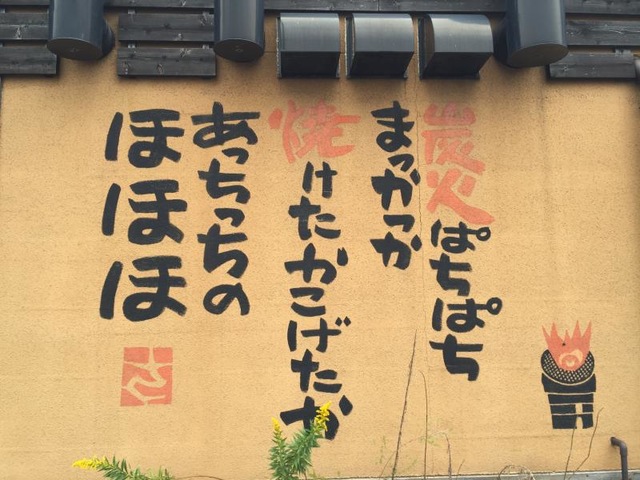 炭火ぱちぱち
まっかっか
焼けたかこげたか
あっちっちの
ほほほ